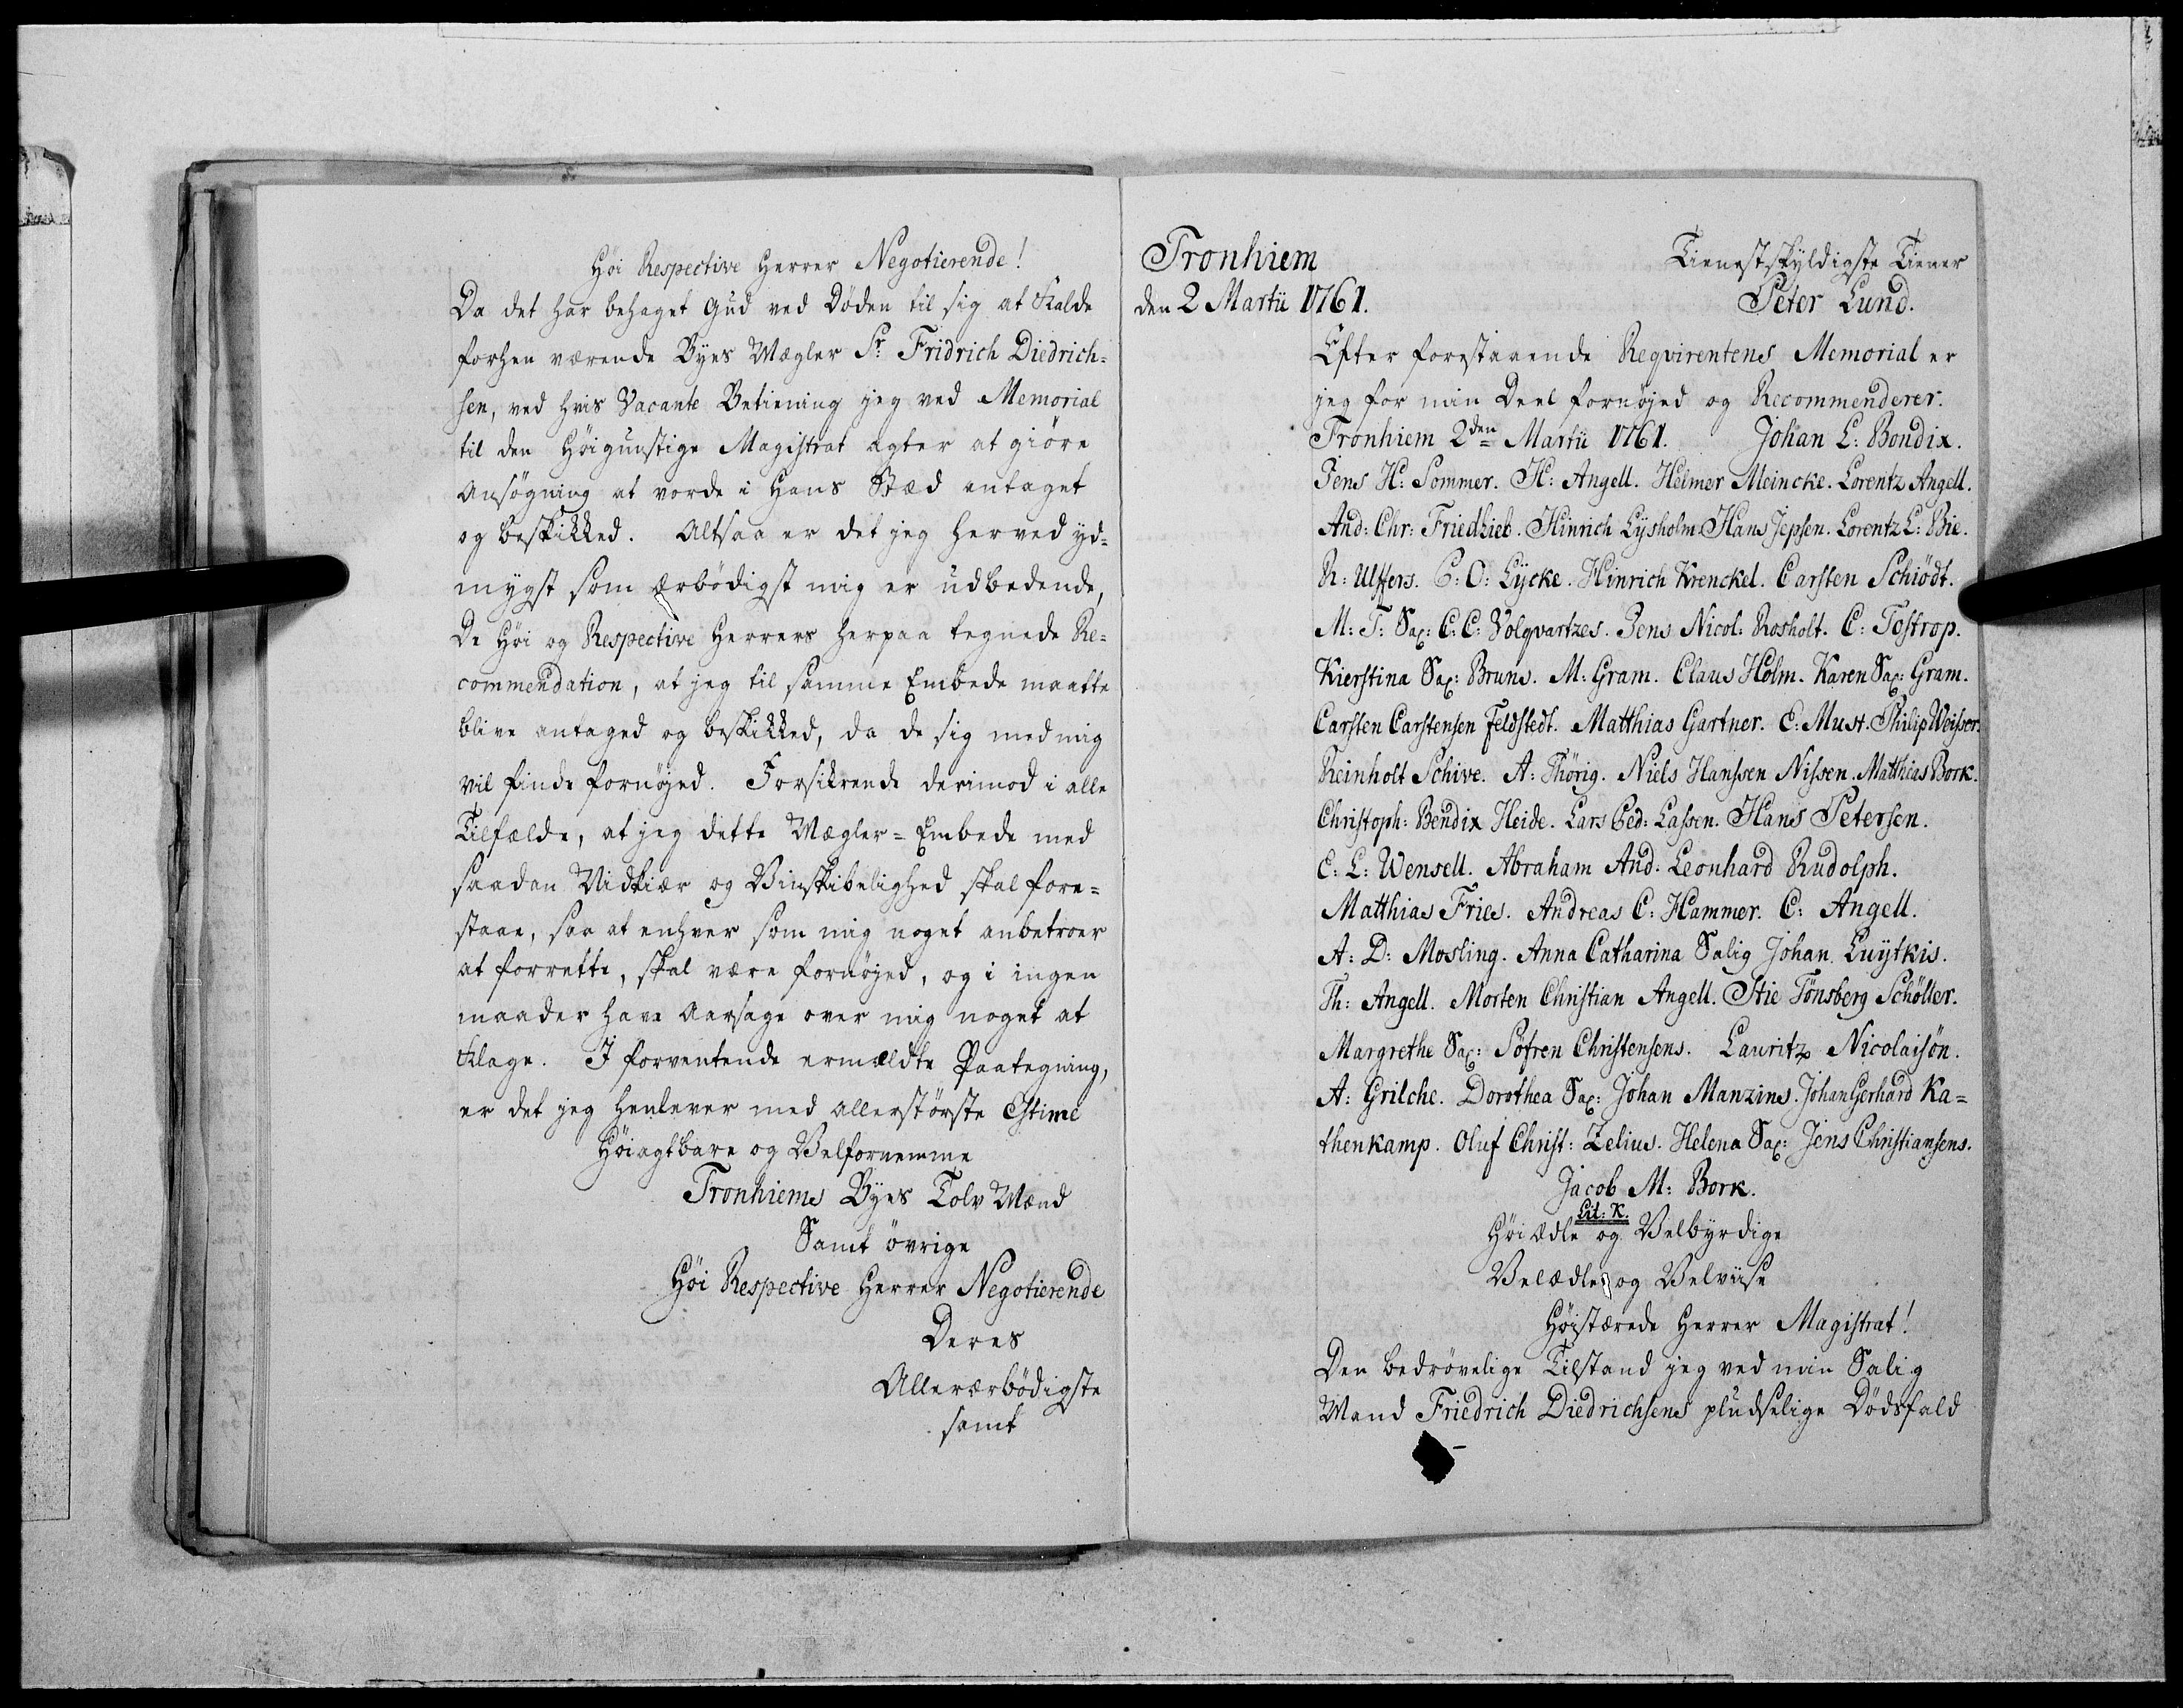 Høi Respective Herrer Negotierende!
Da det har behaget Gud ved Døden til sig at Kalde
forhen værende Byes Mægler Sr. Fridrich Diedrich=
sen, ved hvis Vacante Betiening jeg ved Memorial
til den Høigunstige Magistrat agter at giøre
Ansøgning at vorde i Hans Stæd antaget
og beskikked. Altsaa er det jeg herved yd=
mygst som ærbødigst mig er udbedende,
De Høi og Respective Herrers herpaa tegnede Re=
commendation, at jeg til samme Embede maatte
blive antaged og beskikked, da de sig med mig
vil finde fornøjed. Forsikrende derimod i alle
Tilfælde, at jeg dette Mægler=Embede med
saadan Nidkiær og Vinskibelighed skal fore=
staae, saa at enhver som mig noget anbetroer
at forrette, skal være fornøjed, og i ingen
maader have Aarsage over mig noget at
Klage. I forventende ermældte Paategning,
er det jeg henlever med allerstørste Estime
Høiagtbare og Velfornemme
Tronhiems Byes Tolv Mænd
Samt øvrige
Høi Respective Herrer Negotierende
Deres
Allerærbødigste
samt
Tronhiem
den 2 Martii 1761.
Tienestskyldigste Tiener
Peter Lund.
Efter forestaaende Reqvirentens Memorial er
jeg for min Deel fornøjed og Recommenderer.
Tronhiem 2den Martii 1761. Johan L: Bendix.
Jens H: Sommer. H: Angell. Helmer Meincke. Lorentz Angell.
And: Chr: Friedlieb. Hinrich Lysholm. Hans Jepsen. Lorentz L: Bie.
R: Ulffers. C: O: Lycke. Hinrich Krenckel. Carsten Schiødt.
M: T: Sal: C: C: Volqvartzes. Jens Nicol: Rosholt. C: Tostrop.
Kierstina Sal: Bruns. M: Gram. Claus Holm. Karen Sal: Gram.
Carsten Carstensen Feldstedt. Matthias Gartner. E: Must. Philip Weisser.
Reinholt Schive. A: Thørig. Niels Hanssen Nissen. Matthias Bork.
Christoph: Bendix Heide. Lars Ped: Lassen. Hans Petersen.
E: L: Wensell. Abraham And: Leonhard Rudolph.
Matthias Fries. Andreas C: Hammer. C: Angell.
A: D: Mosling. Anna Catharina Salig Johan Luytkis.
Th: Angell. Morten Christian Angell. Stie Tønsberg Schøller.
Margrethe Sal: Søfren Christensens. Lauritz Nicolaisøn.
A: Grilche. Dorothea Sal: Johan Manzins. Johan Gerhard Ka=
thenkamp. Oluf Christ: Zelius. Helena Sal: Jens Christiansens.
Jacob M: Bork.
Lit: K.
Høi Ædle og Velbyrdige
Velædle og Velviise
Høistærede Herrer Magistrat!
Den bedrøvelige Tilstand jeg ved min Salig
Mand Friedrich Diedrichsens pludselige Dødsfald